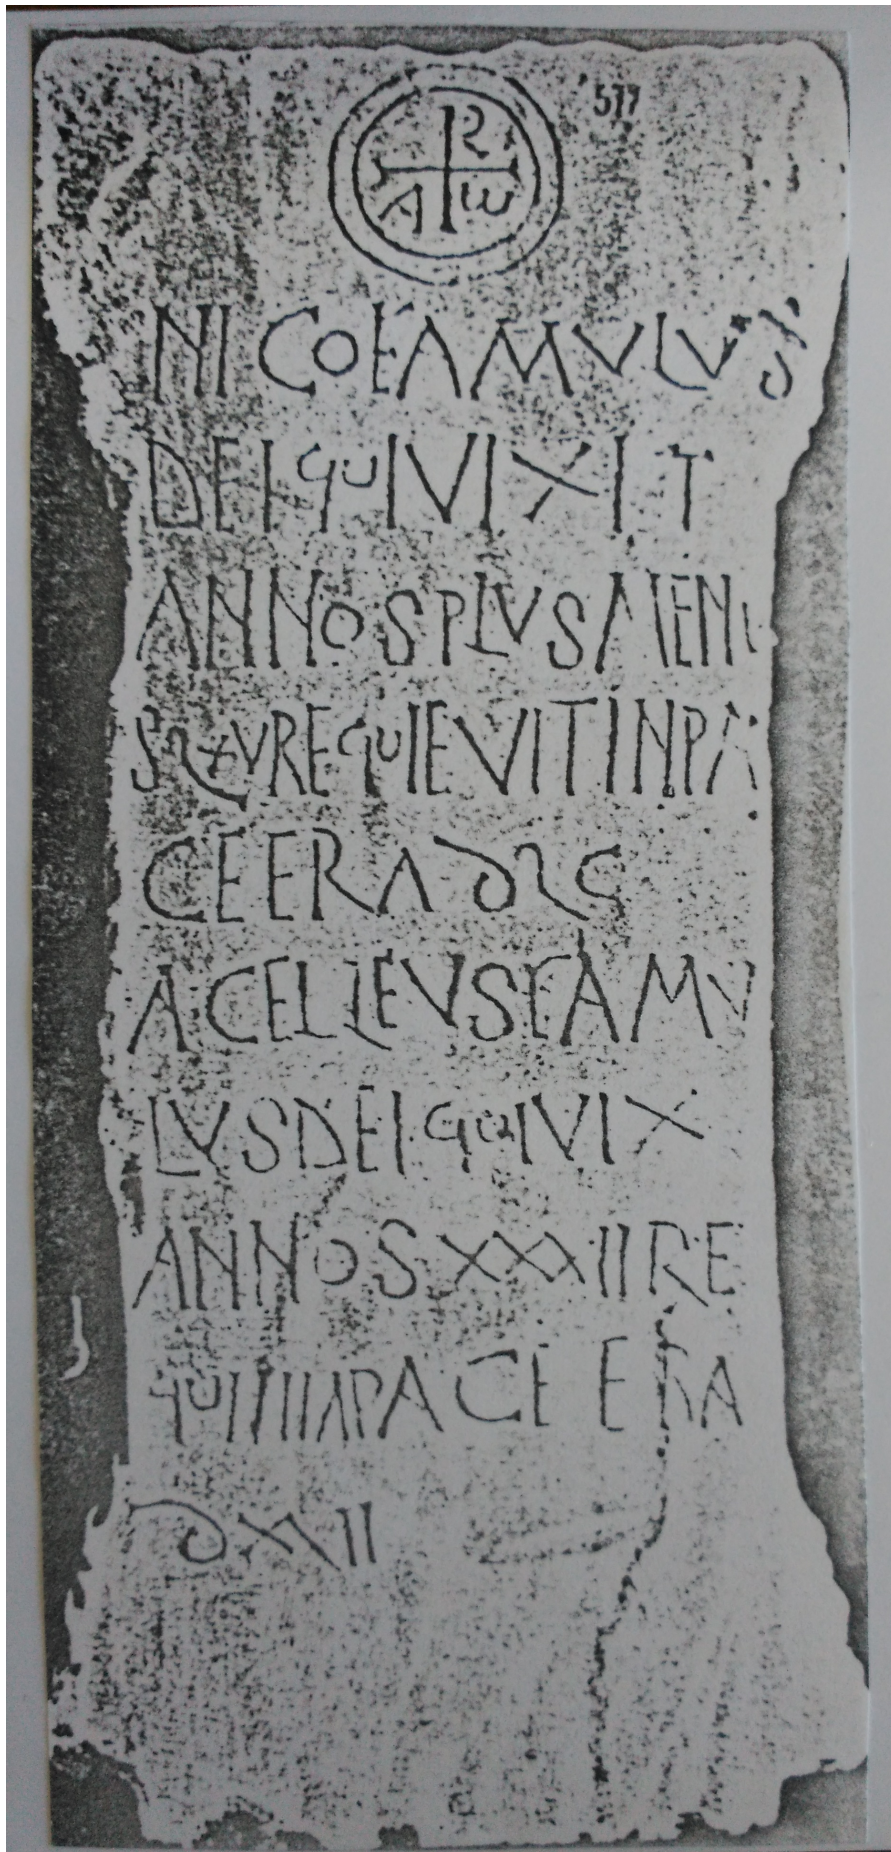 577
R
A ω
NICOFAMVLVS
DEI QUI VIXIT
ANNOS PLVS MEN
REQUIEVIT IN PA
CE ERA
ACELLEVS FAMV
LVS DEI QUI VIX
ANNOS XXXII RE
PACE ERA
DXXII